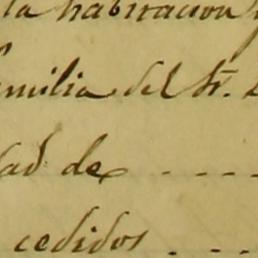 la habitacion
familia del Sr.
dad de ----
cedidos ---